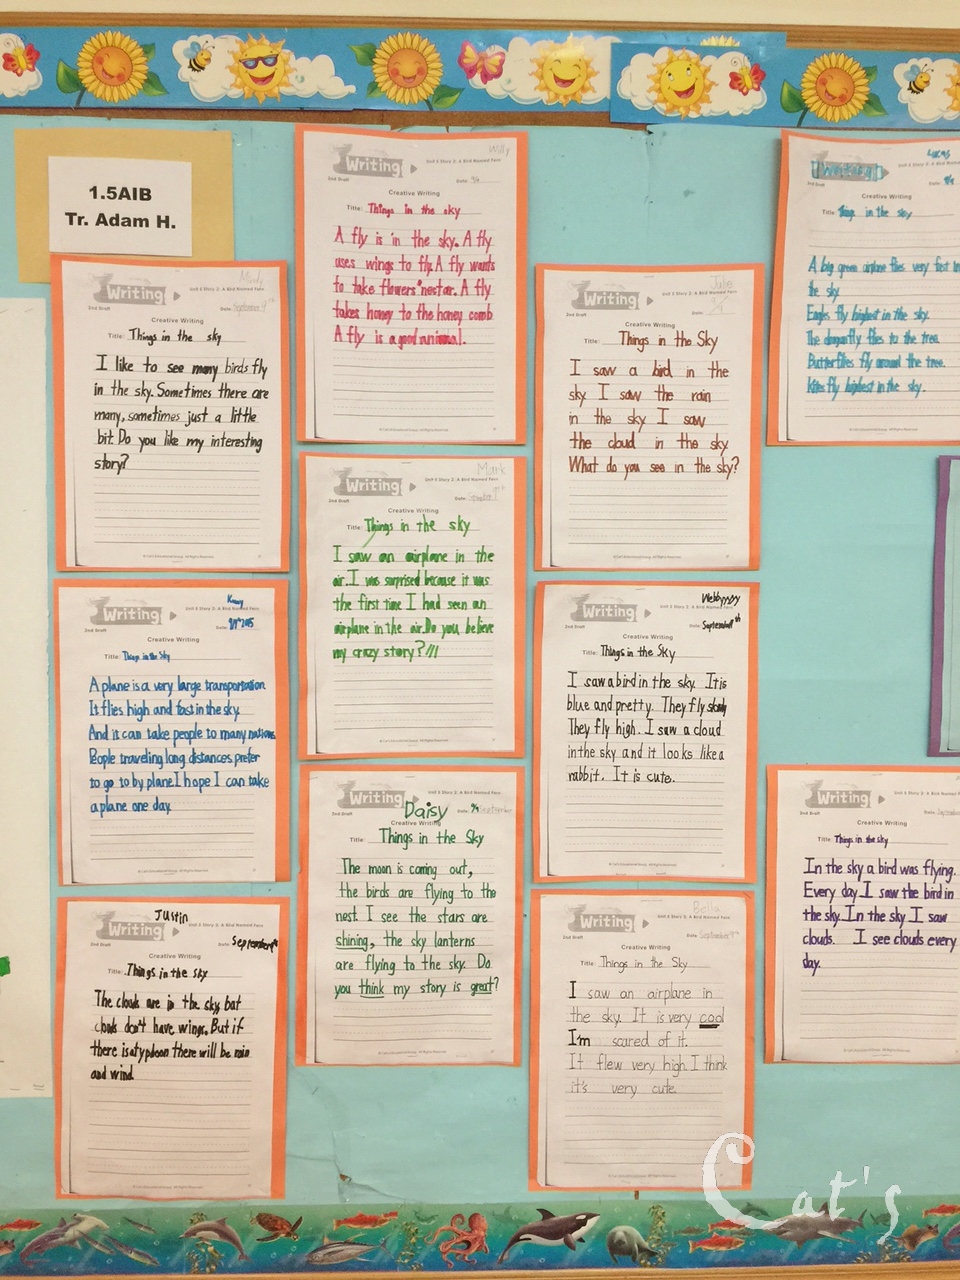 1.5AIB
Tr. Adam H.
Mindy
Writing
Unit 5 Story 2: A Bird Named Fern
2nd Draft
Date: September 9th
Creative Writing
Title: Things in the sky
I like to see many birds fly
in the sky. Sometimes there are
many, sometimes just a little
bit. Do you like my interesting
story?
Writing
Unit 5 Story 2: A Bird Named Fern
2nd Draft
Date:
Creative Writing
Title: Things in the Sky
A plane is a very large transportation.
It flies high and fast in the sky.
And it can take people to many nations.
People traveling long distances prefer
to go to by plane. I hope I can take
a plane one day.
Justin
Writing
Unit 5 Story 2: A Bird Named Fern
2nd Draft
Date: September 9th
Creative Writing
Title: Things in the sky
The clouds are in the sky, but
clouds don't have wings. But if
there is a typhoon there will be rain
and wind.
Willy
Writing
Unit 5 Story 2: A Bird Named Fern
2nd Draft
Date: 9/9
Creative Writing
Title: Things in the sky
A fly is in the sky. A fly
uses wings to fly. A fly wants
to take flowers' nectar. A fly
takes honey to the honey comb
A fly is a good animal.
Mark
Writing
Unit 5 Story 2: A Bird Named Fern
2nd Draft
Date:
Creative Writing
Title: Things in the sky
I saw an airplane in the
air. I was surprised because it was
the first time I had seen an
airplane in the air. Do you believe
my crazy story?///
Writing
Unit 5 Story 2: A Bird Named Fern
2nd Draft
Daisy
Date: 9/9 September
Creative Writing
Title: Things in the Sky
The moon is coming out,
the birds are flying to the
nest. I see the stars are
shining, the sky lanterns
are flying to the sky. Do
you think my story is great?
Julie
Writing
Unit 5 Story 2: A Bird Named Fern
2nd Draft
Date:
Creative Writing
Title: Things in the Sky
I saw a bird in the
sky. I saw the rain
in the sky. I saw
the cloud in the sky.
What do you see in the sky?
Writing
Unit 5 Story 2: A Bird Named Fern
2nd Draft
Date: September 9th
Creative Writing
Title: Things in the Sky
I saw a bird in the sky. It is
blue and pretty. They fly slowly
They fly high. I saw a cloud
in the sky and it looks like a
rabbit. It is cute.
Bella
Writing
Unit 5 Story 2: A Bird Named Fern
2nd Draft
Date: September 9th
Creative Writing
Title: Things in the Sky
I saw an airplane in
the sky. It is very cool
I'm scared of it.
It flew very high. I think
it's very cute.
Lucas
Writing
Unit 5 Story 2: A Bird
2nd Draft
Date: 9/9
Creative Writing
Title: Things in the sky
A big green airplane flies very fast in
the sky.
Eagles fly highest in the sky.
The dragonfly flies to the tree.
Butterflies fly around the tree.
Kites fly highest in the sky.
Writing
Unit 5 Story 2: A Bird
2nd Draft
Date: September
Creative Writing
Title: Things in the sky
In the sky a bird was flying.
Every day I saw the bird in
the sky. In the sky I saw
clouds. I see clouds every
day.
Cat's